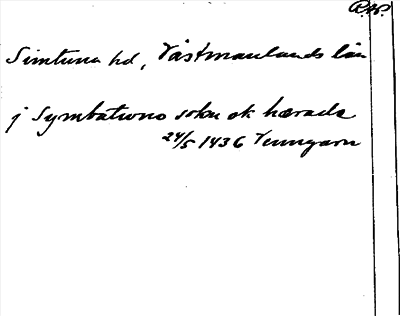 R.A.P.
Simtuna hd, Västmanlands län
j Symbatuno sokn ok hærade
24/5 1436 Venngarn